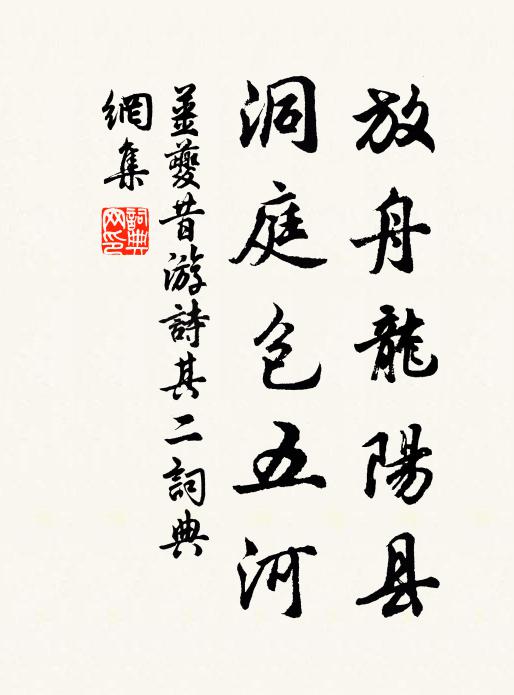 放舟龍陽县
洞庭包五河
姜夔昔游詩其二詞典
網集
詞典網印